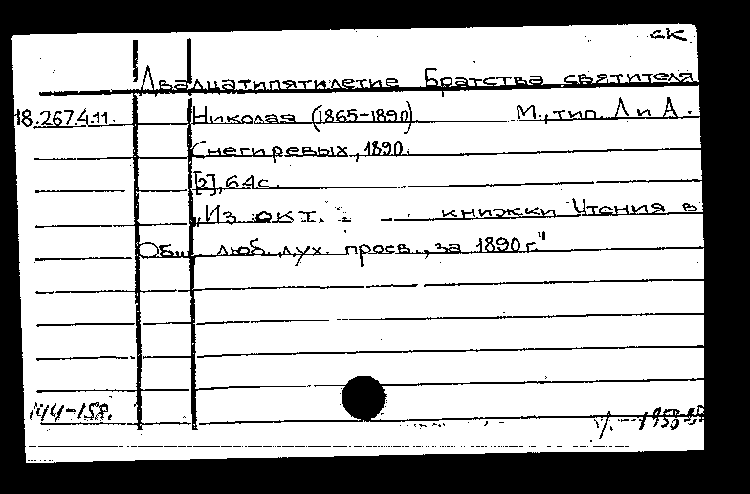 ск
Двадцатипятилетие Братства святителя
18.267.4.11. Николая (1865-1890) М., тип. Л и А.
Снегиревых, 1890.
[2], 64 с.
„Из окт. книжки Чтения в
Об. люб. дух. просв., за 1890 г."
144-158.